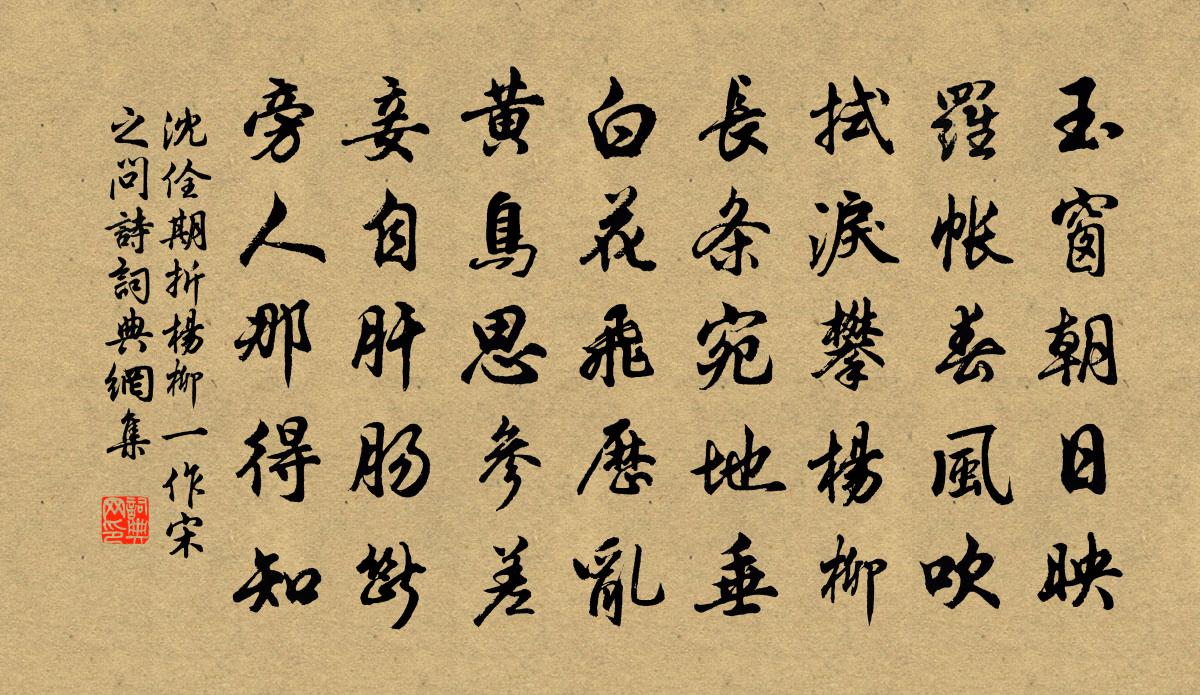 玉窗朝日映
羅帳春風吹
拭淚攀楊柳
長条宛地垂
白花飛歷亂
黃鳥思參差
妾自肝腸斷
旁人那得知
沈佺期折楊柳一作宋
之問詩詞典網集
詞典网印